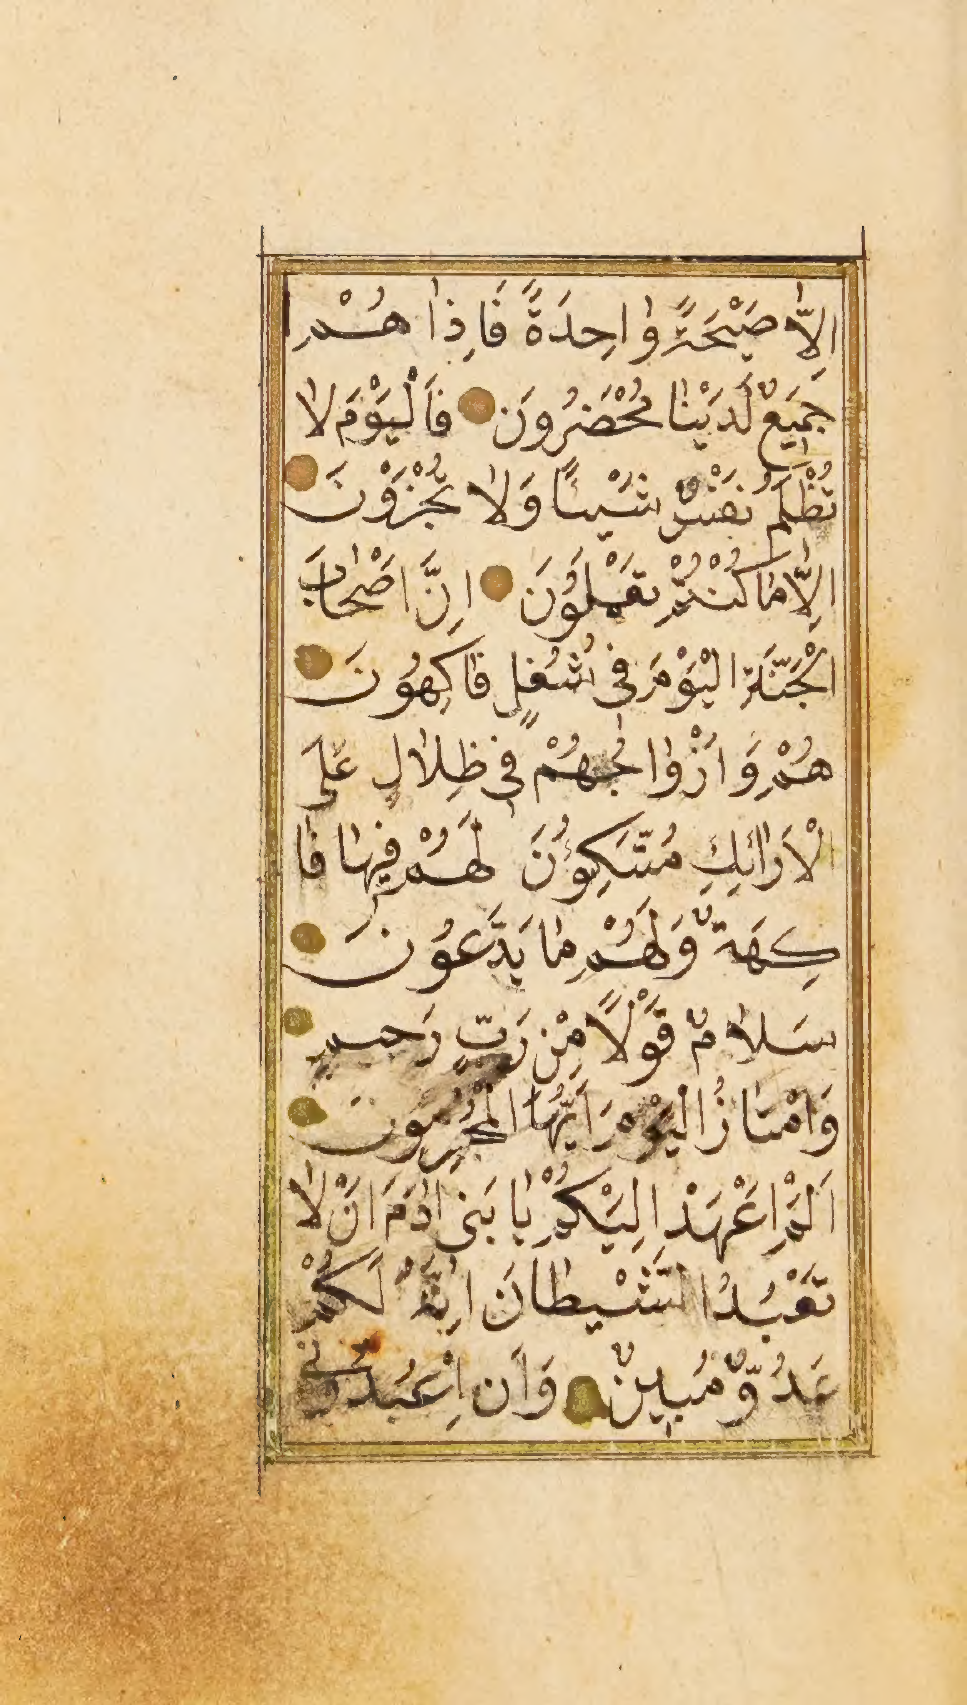 اِلاّٰ صَيْحَةً وٰاحِدَةً فَاِذٰا هُمْ
جَمِيعٌ لَدَيْنٰا مُحْضَرُونَ فَالْيَوْمَ لاٰ
تُظْلَمُ نَفْسٌ شَيْئًا وَلاٰ تُجْزَوْنَ
اِلاّٰ مٰا كُنْتُمْ تَعْمَلُونَ اِنَّ اَصْحٰابَ
الْجَنَّةِ الْيَوْمَ فى شُغُلٍ فٰاكِهُونَ
هُمْ وَ اَزْوٰاجُهُمْ فى ظِلاٰلٍ عَلَى
الْاَرٰائِكِ مُتَّكِؤُنَ لَهُمْ فِيهٰا فٰا
كِهَةٌ وَلَهُمْ مٰا يَدَّعُونَ
سَلاٰمٌ قَوْلًا مِنْ رَبٍّ رَحيمٍ
وَامْتٰازُا الْيَوْمَ اَيُّهَا الْمُجْرِمُونَ
اَلَمْ اَعْهَدْ اِلَيْكُمْ يٰا بَنى اٰدَمَ اَنْ لاٰ
تَعْبُدُا الشَّيْطٰانَ اِنَّهُ لَكُمْ
عَدُوٌّ مُبِينٌ وَاَنِ اعْبُدُونى